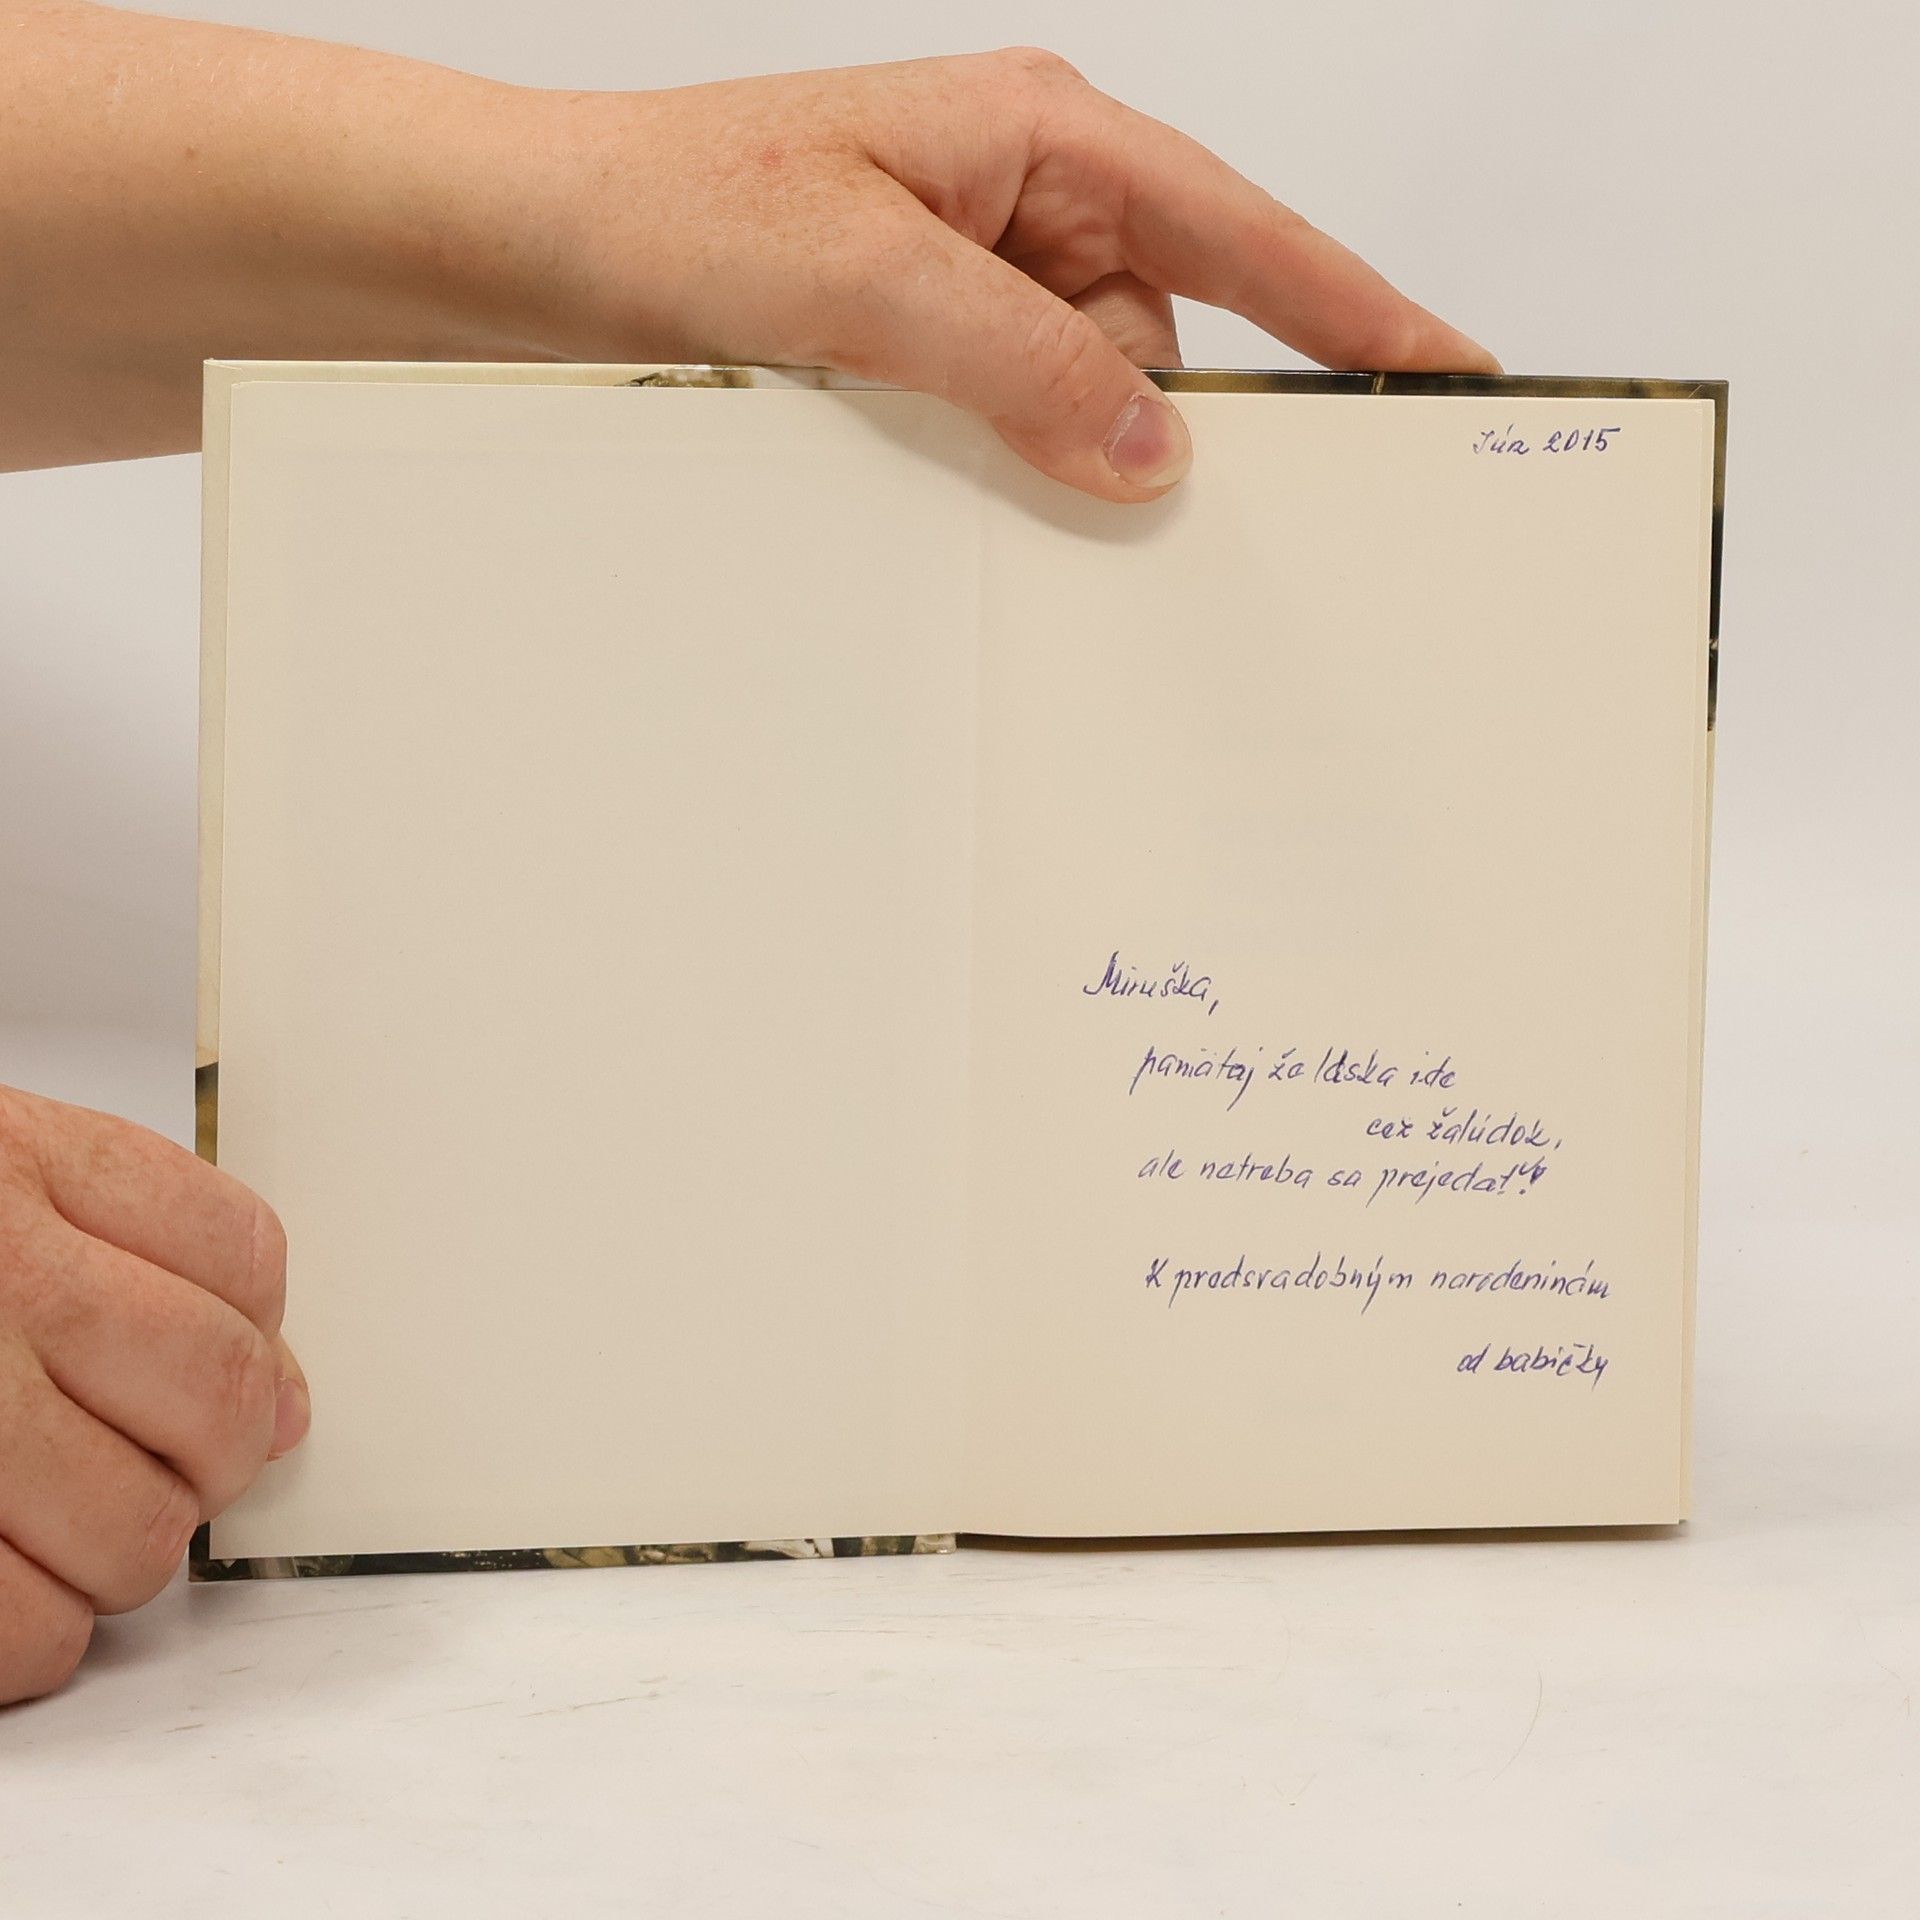 Jún 2015
Miruška,
pamätaj že láska ide
cez žalúdok,
ale netreba sa prejedať!
K predsvadobným narodeninám
od babičky